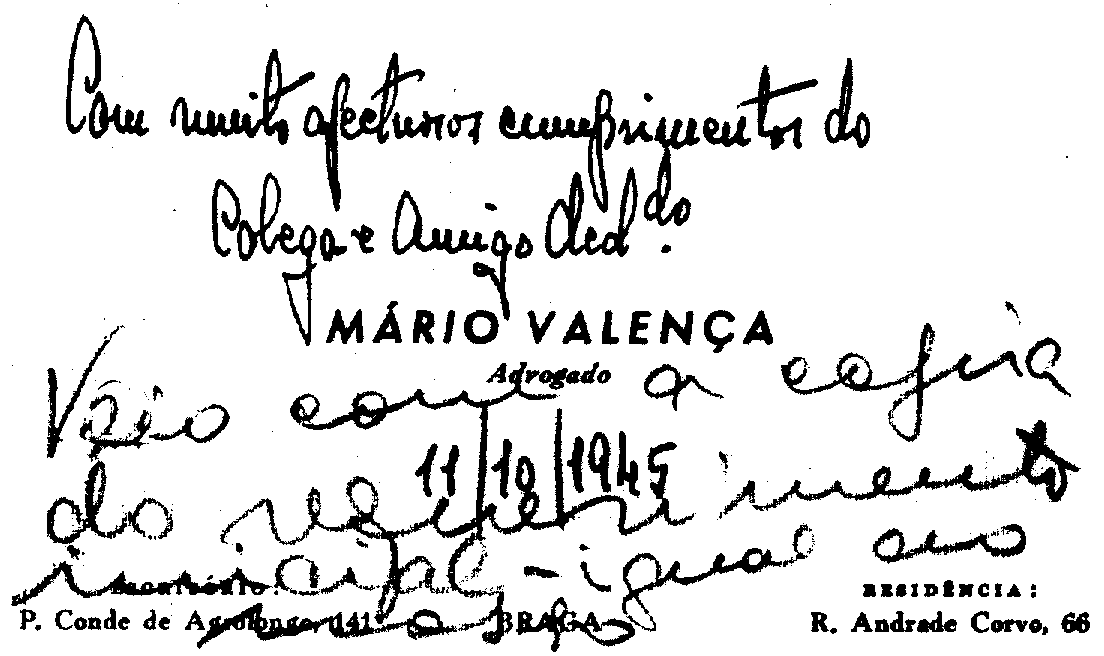 Com muito afectuosos cumprimentos do
Colega e Amigo Ded.do
MÁRIO VALENÇA
Advogado
Veio com a cópia
11/10/1945
do requerimento
inicial - igual ao
ESCRITÓRIO: RESIDÊNCIA:
P. Conde de Agrolongo, 141 BRAGA R. Andrade Corvo, 66